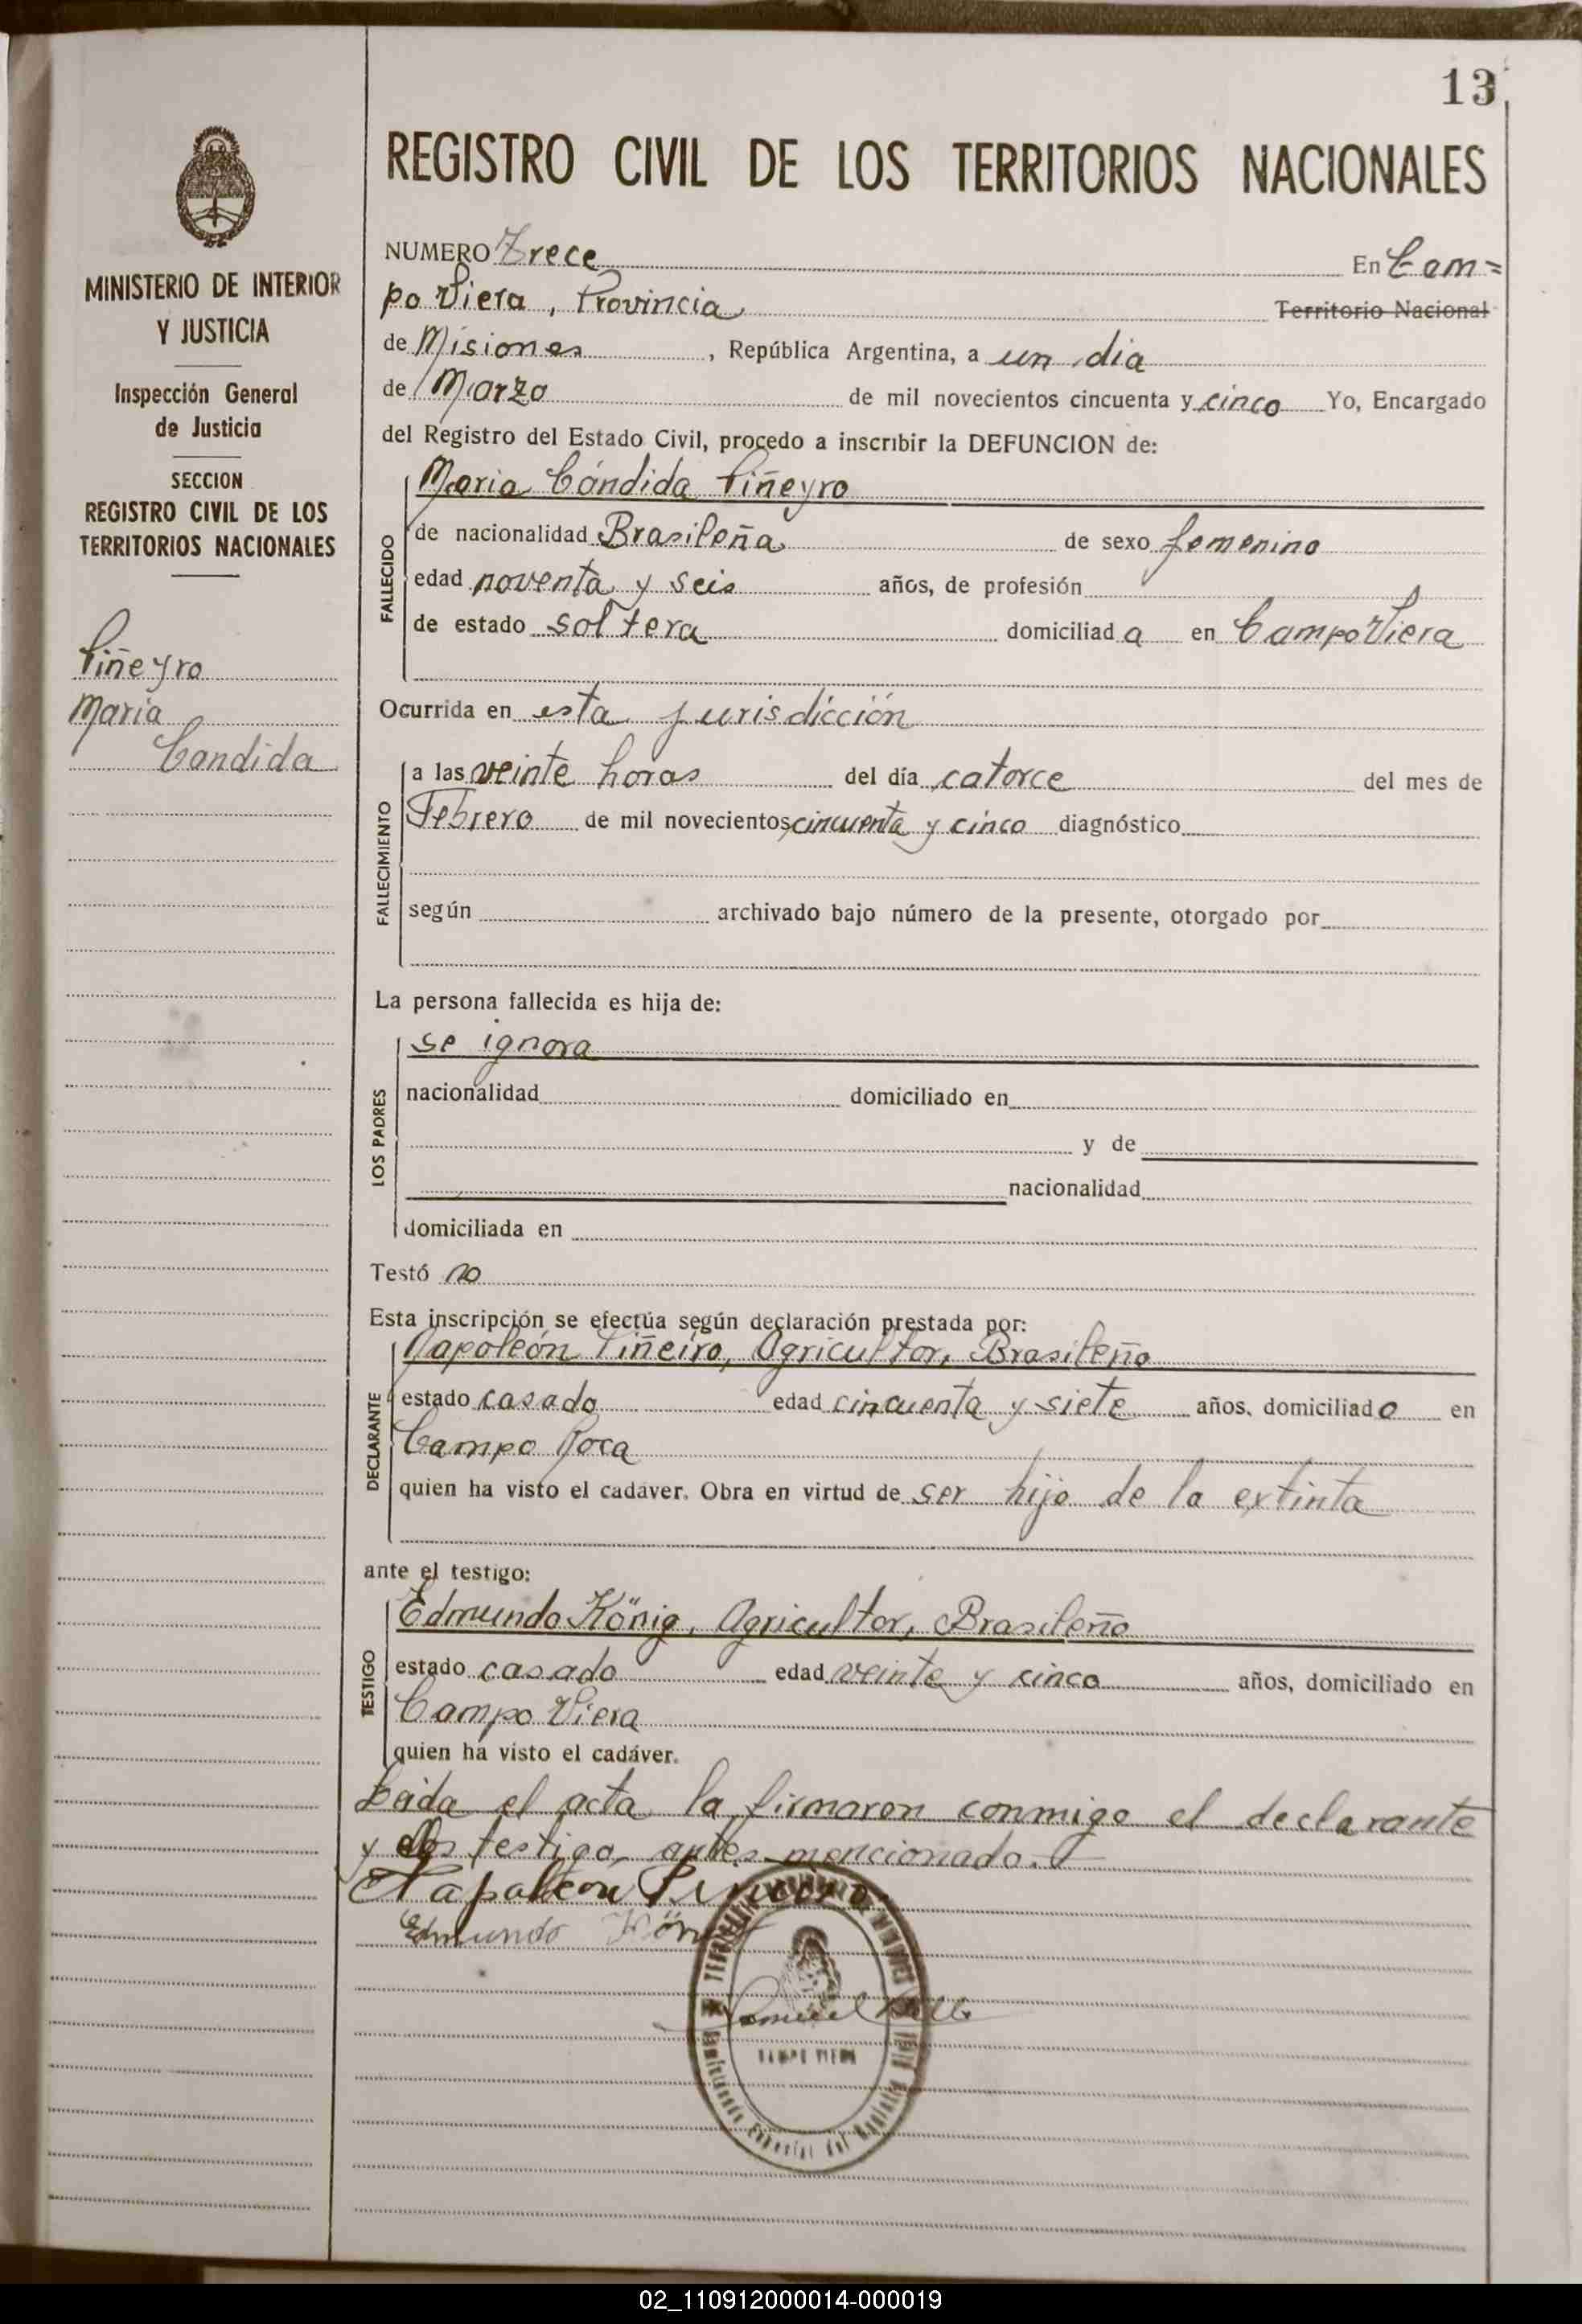 13
REGISTRO CIVIL DE LOS TERRITORIOS NACIONALES
MINISTERIO DE INTERIOR
Y JUSTICIA
Inspección General
de Justicia
SECCION
REGISTRO CIVIL DE LOS
TERRITORIOS NACIONALES
Piñeyro
Maria
Candida
NUMERO Trece En Cam=
po Viera, Provincia Territorio Nacional
de Misiones, República Argentina, a un dia
de Marzo de mil novecientos cincuenta y cinco Yo, Encargado
del Registro del Estado Civil, procedo a inscribir la DEFUNCION de:
FALLECIDO
Maria Cándida Piñeyro
de nacionalidad Brasileña de sexo femenino
edad noventa y seis años, de profesión
de estado soltera domiciliada en Campo Viera
Ocurrida en esta jurisdicción
FALLECIMIENTO
a las veinte horas del día catorce del mes de
Febrero de mil novecientos cincuenta y cinco diagnóstico
según archivado bajo número de la presente, otorgado por
La persona fallecida es hija de:
LOS PADRES
se ignora
nacionalidad domiciliado en
y de
nacionalidad
domiciliada en
Testó no
Esta inscripción se efectúa según declaración prestada por:
DECLARANTE
Napoleón Piñeiro, Agricultor, Brasileño
estado casado edad cincuenta y siete años, domiciliado en
Campo Roca
quien ha visto el cadáver. Obra en virtud de ser hijo de la extinta
ante el testigo:
TESTIGO
Edmundo König, Agricultor, Brasileño
estado casado edad veinte y cinco años, domiciliado en
Campo Viera
quien ha visto el cadáver.
Leida el acta la firmaron conmigo el declarante
y testigo antes mencionado.
Napoleon Pineiro
Edmundo König
CAMPO VIERA
02_110912000014-000019